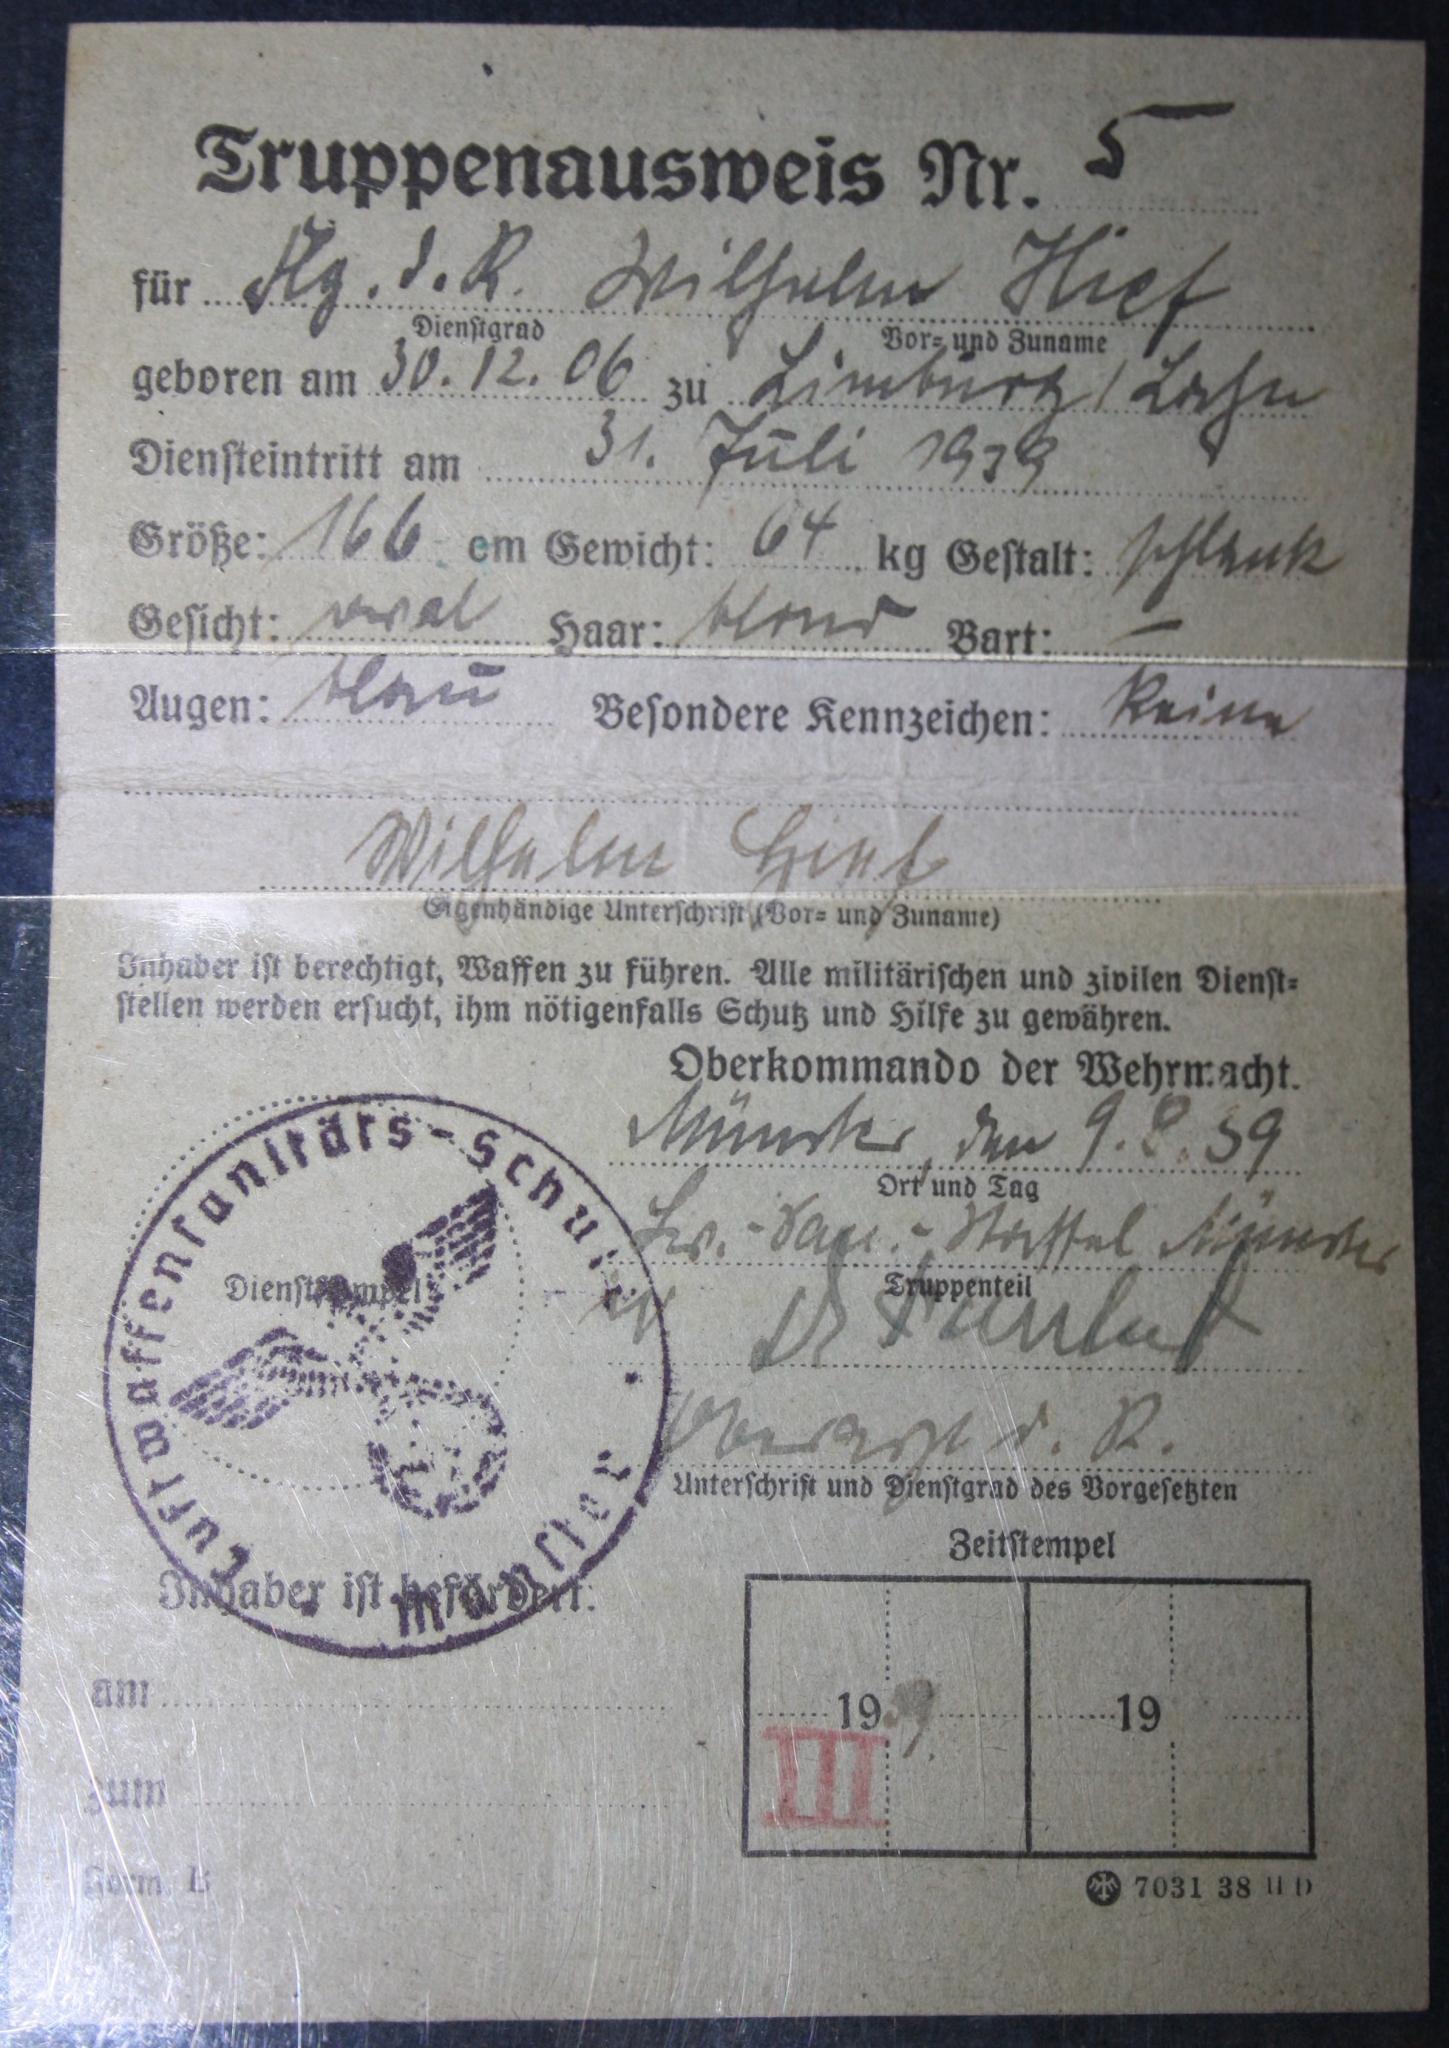 Truppenausweis Nr. 5
für Flg. d. R. Wilhelm
Dienstgrad Vor= und Zuname
geboren am 30.12.06 zu Limburg / Lahn
Diensteintritt am 31. Juli 1939
Größe: 166 cm Gewicht: 64 kg Gestalt: schlank
Gesicht: oval Haar: blond Bart: —
Augen: blau Besondere Kennzeichen: keine
Wilhelm
Eigenhändige Unterschrift (Vor= und Zuname)
Inhaber ist berechtigt, Waffen zu führen. Alle militärischen und zivilen Dienst=
stellen werden ersucht, ihm nötigenfalls Schutz und Hilfe zu gewähren.
Oberkommando der Wehrmacht.
Münster, den 9.8.39
Ort und Tag
Lw.-San.-Staffel Münster
Truppenteil
Dienststempel
Luftwaffensanitäts-Schule
Münster
Oberarzt d. R.
Unterschrift und Dienstgrad des Vorgesetzten
Zeitstempel
Inhaber ist befördert:
am
zum
1939. 19
III
Form. B
7031 38 II D